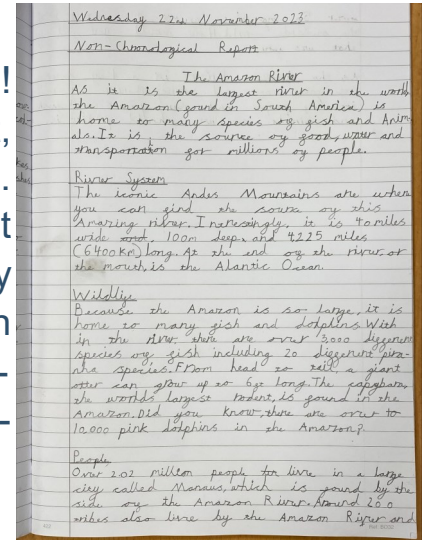 !
,
.
t
y
n
-
-
Wednesday 22nd November 2023
Non-Chronological Report
The Amazon River
As it is the largest river in the world
the Amazon (found in South America) is
home to many species of fish and Anim-
als. It is the source of food, water and
transportation for millions of people.
River System
The iconic Andes Mountains are where
you can find the source of this
Amazing river. Interesingly, it is 40 miles
wide and, 100m deep and 4225 miles
(6400km) long. At the end of the river, or
the mouth, is the Alantic Ocean.
Wildlife
Because the Amazon is so large, it is
home to many fish and dolphins With
in the river, there are over 3,000 different
species of fish including 20 different pira-
nha species. From head to tail, a giant
otter can grow up to 6ft long. The capybara,
the worlds largest rodent, is found in the
Amazon. Did you know, there are over to
10,000 pink dolphins in the Amazon?
People
Over 2.02 million people live in a large
city called Manaus, which is found by the
side of the Amazon River. Around 200
tribes also live by the Amazon River and